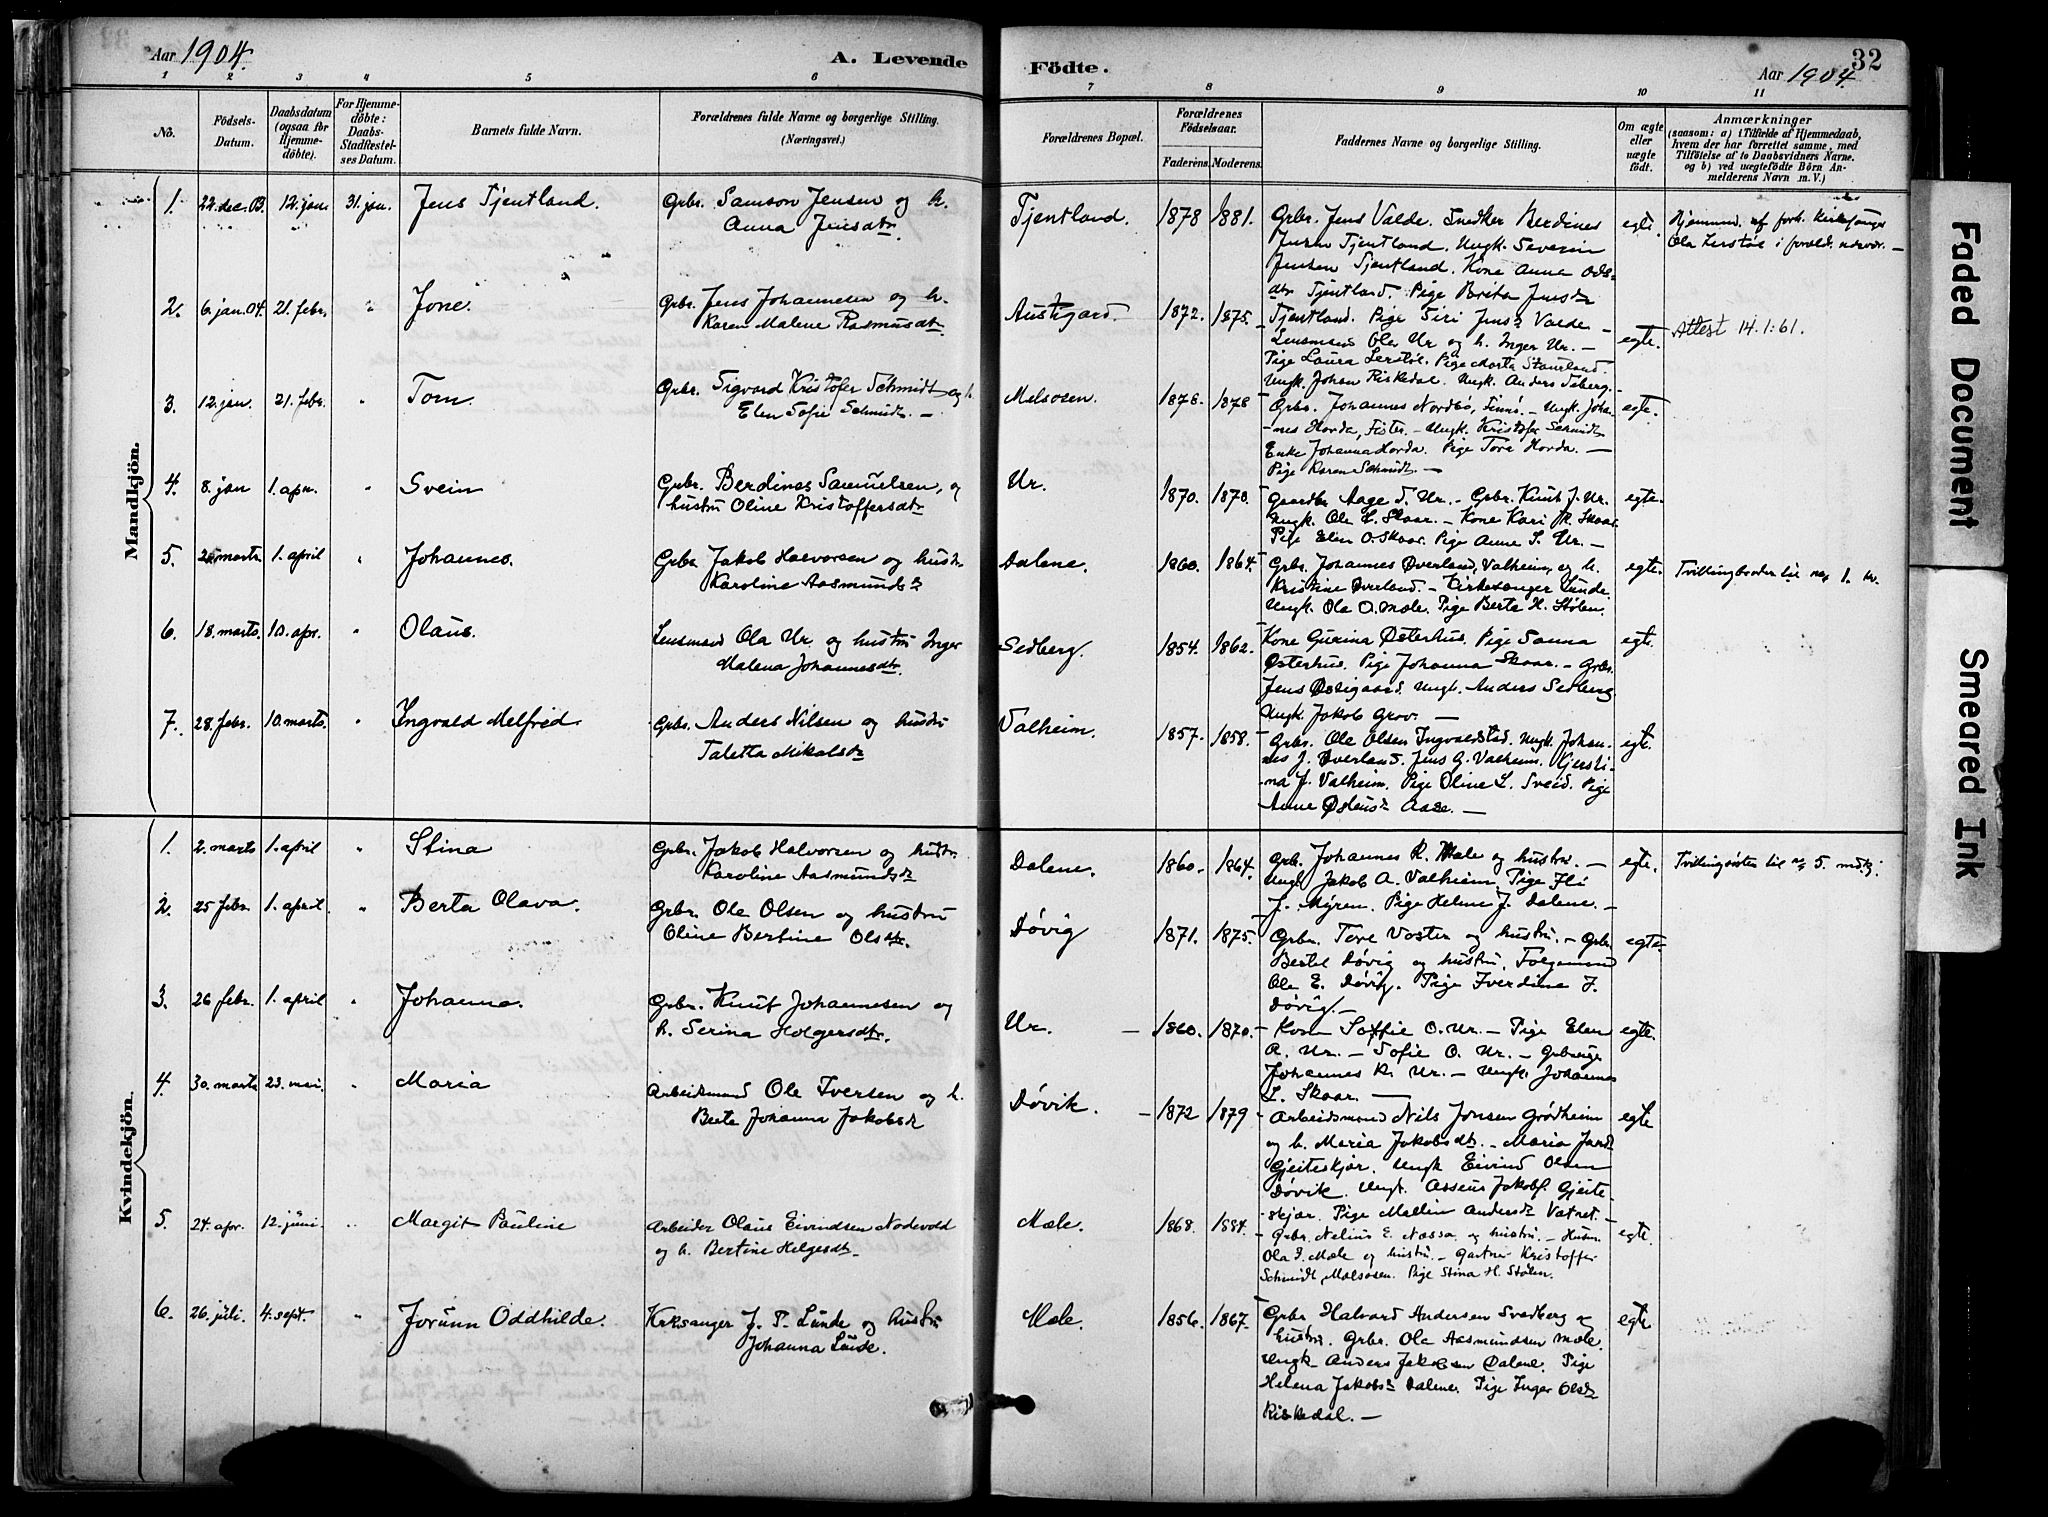 Aar 1904.
A. Levende
Födte.
Aar 1904.
32
1 2 3 4 5 6 7 8 9 10 11
No.
Födsels-
Datum.
Daabsdatum
(ogsaa for
Hjemme-
döbte).
For Hjemme-
döbte:
Daabs-
Stadfæstel-
ses Datum.
Barnets fulde Navn.
Forældrenes fulde Navne og borgerlige Stilling.
(Næringsvei.)
Forældrenes Bopæl.
Forældrenes
Födselsaar.
Faderens. Moderens.
Faddernes Navne og borgerlige Stilling.
Om ægte
eller
uægte
födt.
Anmærkninger
(saasom: a) i Tilfælde af Hjemmedaab,
hvem der har forrettet samme, med
Tilföielse af to Daabsvidners Navne.
og b) ved uægtefödte Börn An-
melderens Navn m. V.)
Mandkjön.
1. 22. dec. 03. 12. jan. 31. jan. Jens Tjentland. Grbr. Samson Jensen og h.
Anna Jensdtr. Tjentland. 1878 1881. Grbr. Jens Valde. Snedker Berdines
Jensen Tjentland. Ungk. Severin
Jensen Tjentland. Kone Anna Ols-
dtr Tjentland. Pige Brita Jensdr
Tjentland. Pige Siri Jensdr Valde —
egte. Hjemmed. af forh. Kirkesanger
Ola Lerstøl i foræld. nærvær. —
2. 6. jan. 04. 21. febr. " Jone. Grbr. Jens Johannesen og h.
Karen Malene Rasmusdtr Austigard. 1872. 1875.
Lensmand Ola Ur og h. Inger Ur. —
Pige Laura Lerstøl. Pige Marta Staurland.
Ungk. Johan Riskedal. Ungk. Anders Seberg. —
egte. Attest 14.1:61.
3. 12. jan. 21. febr. " Tom. Grbr. Sigvard Kristofer Schmidt og h.
Elen Sofie Schmidt. — Melsosen. 1878. 1878
Grbr. Johannes Nordbø, Finnø. — Ungk. Johan-
nes Horda, Fister. — Ungk. Kristofer Schmidt
Enke Johanna Horda. Pige Tora Horda. —
Pige Karen Schmidt. —
egte.
4. 8. jan 1. apr. " Svein Grbr. Berdines Samuelsen, og
hustru Oline Kristoffersdtr Ur. 1870. 1870.
Gaardbr Aage S. Ur. — Grbr. Knut J. Ur.
Ungk. Ole L. Skaar. — Kone Kari R. Skaar.
Pige Elen O. Skaar. Pige Anne S. Ur. —
egte.
5. 2. marts 1. april " Johannes. Grbr. Jakob Halvorsen og hustr.
Karoline Aasmundsdr Dalene. 1860. 1864.
Grbr. Johannes Øverland, Valheim, og h.
Kristine Øverland. — Kirkesanger Lunde.
Ungk. Ola O. Mæle. Pige Berta H. Stølen.
egte. Tvillingbroder til no 1. kv.
6. 18. marts. 10. apr. " Olaus. Lensmand Ola Ur og hustru Inger
Malena Johannesdtr. Sedberg. 1854. 1862.
Kone Gurina Østerhus. Pige Sanna
Østerhus. Pige Johanna Skaar. — Grbr.
Jens Østigaard. Ungk. Anders Sedberg
Ungk. Jakob Grov. —
egte.
7. 28. febr. 10. marts. " Ingvald Melfred. Grbr. Anders Nilsen og hustru
Taletta Mikalsdr Valheim. 1857. 1858.
Grbr. Ole Olsen Ingvaldstad. Ungk. Johan-
nes J. Øverland. Jens G. Valheim. Kjersti-
na J. Valheim. Pige Oline L. Sveid. Pige
Anne Østensdr Aase. —
egte.
Kvindekjön.
1. 2. marts 1. april " Stina Grbr. Jakob Halvorsen og hustr.
Karoline Aasmundsdr Dalene. 1860. 1864.
Grb. Johannes K. Mæle og hustru. —
Ungk Jakob A. Valheim. Pige Eli
J. Myren. Pige Helene J. Dalene. —
egte. Tvillingsøster til no 5. mdkj.
2. 25 febr. 1. april. " Berta Olava. Grbr. Ole Olsen og hustru
Oline Bertine Olsdtr. Døvig 1871. 1875.
Grbr. Tore Voster og hustru. — Grbr
Bertel Døvig og hustru. Følgemand
Ole E. Døvig. Pige Iverdine J.
Døvig. —
egte.
3. 26 febr. 1. april " Johanna. Grbr. Knut Johannesen og
h. Serina Holgersdtr. Ur. — 1860. 1870.
Kone Soffie O. Ur. — Pige Elen
A. Ur. — Sofie O. Ur. —
Johannes K. Ur. — Ungk. Johannes
L. Skaar. —
egte.
4. 30. marts 23. mai. " Maria Arbeidsmand Ole Iversen og h.
Berta Johanna Jakobsdr Døvik. — 1872 1879
Arbeidsmand Nils Jonsen Grødheim
og h. Maria Jakobsdtr. — Maria Jansdr
Gjeiteskjær. Ungk Eivind Olsen
Døvik. Ungk. Asseus Jakobs. Gjeite-
skjær. Pige Mallin Andersdr Vatnet. —
egte
5. 24. apr. 12. juni. " Margit Pauline Arbeider Olaus Eivindsen Nodevold
og h. Bertine Helgesdtr. Mæle. 1868. 1884.
Grbr. Nelius E. Næssa og hustru. — Husm.
Ola I. Mæle og hustru. — Gartner Kristoffer
Schmidt, Malsosen. Pige Stina H. Stølen.
egte.
6. 26. juli. 4. sept. " Jorunn Oddhilde. Krksanger J. P. Lunde og hustru
Johanna Lunde. Mæle. 1856. 1867.
Grbr Halvard Andersen Svedberg og
hustru. Grbr. Ole Aasmundsen Mæle.
Ungk. Anders Jakobsen Dalene. Pige
Helena Jakobsdr Dalene. Pige Inger Olsdr
Riskedal. —
egte
Faded Document
Smeared Ink